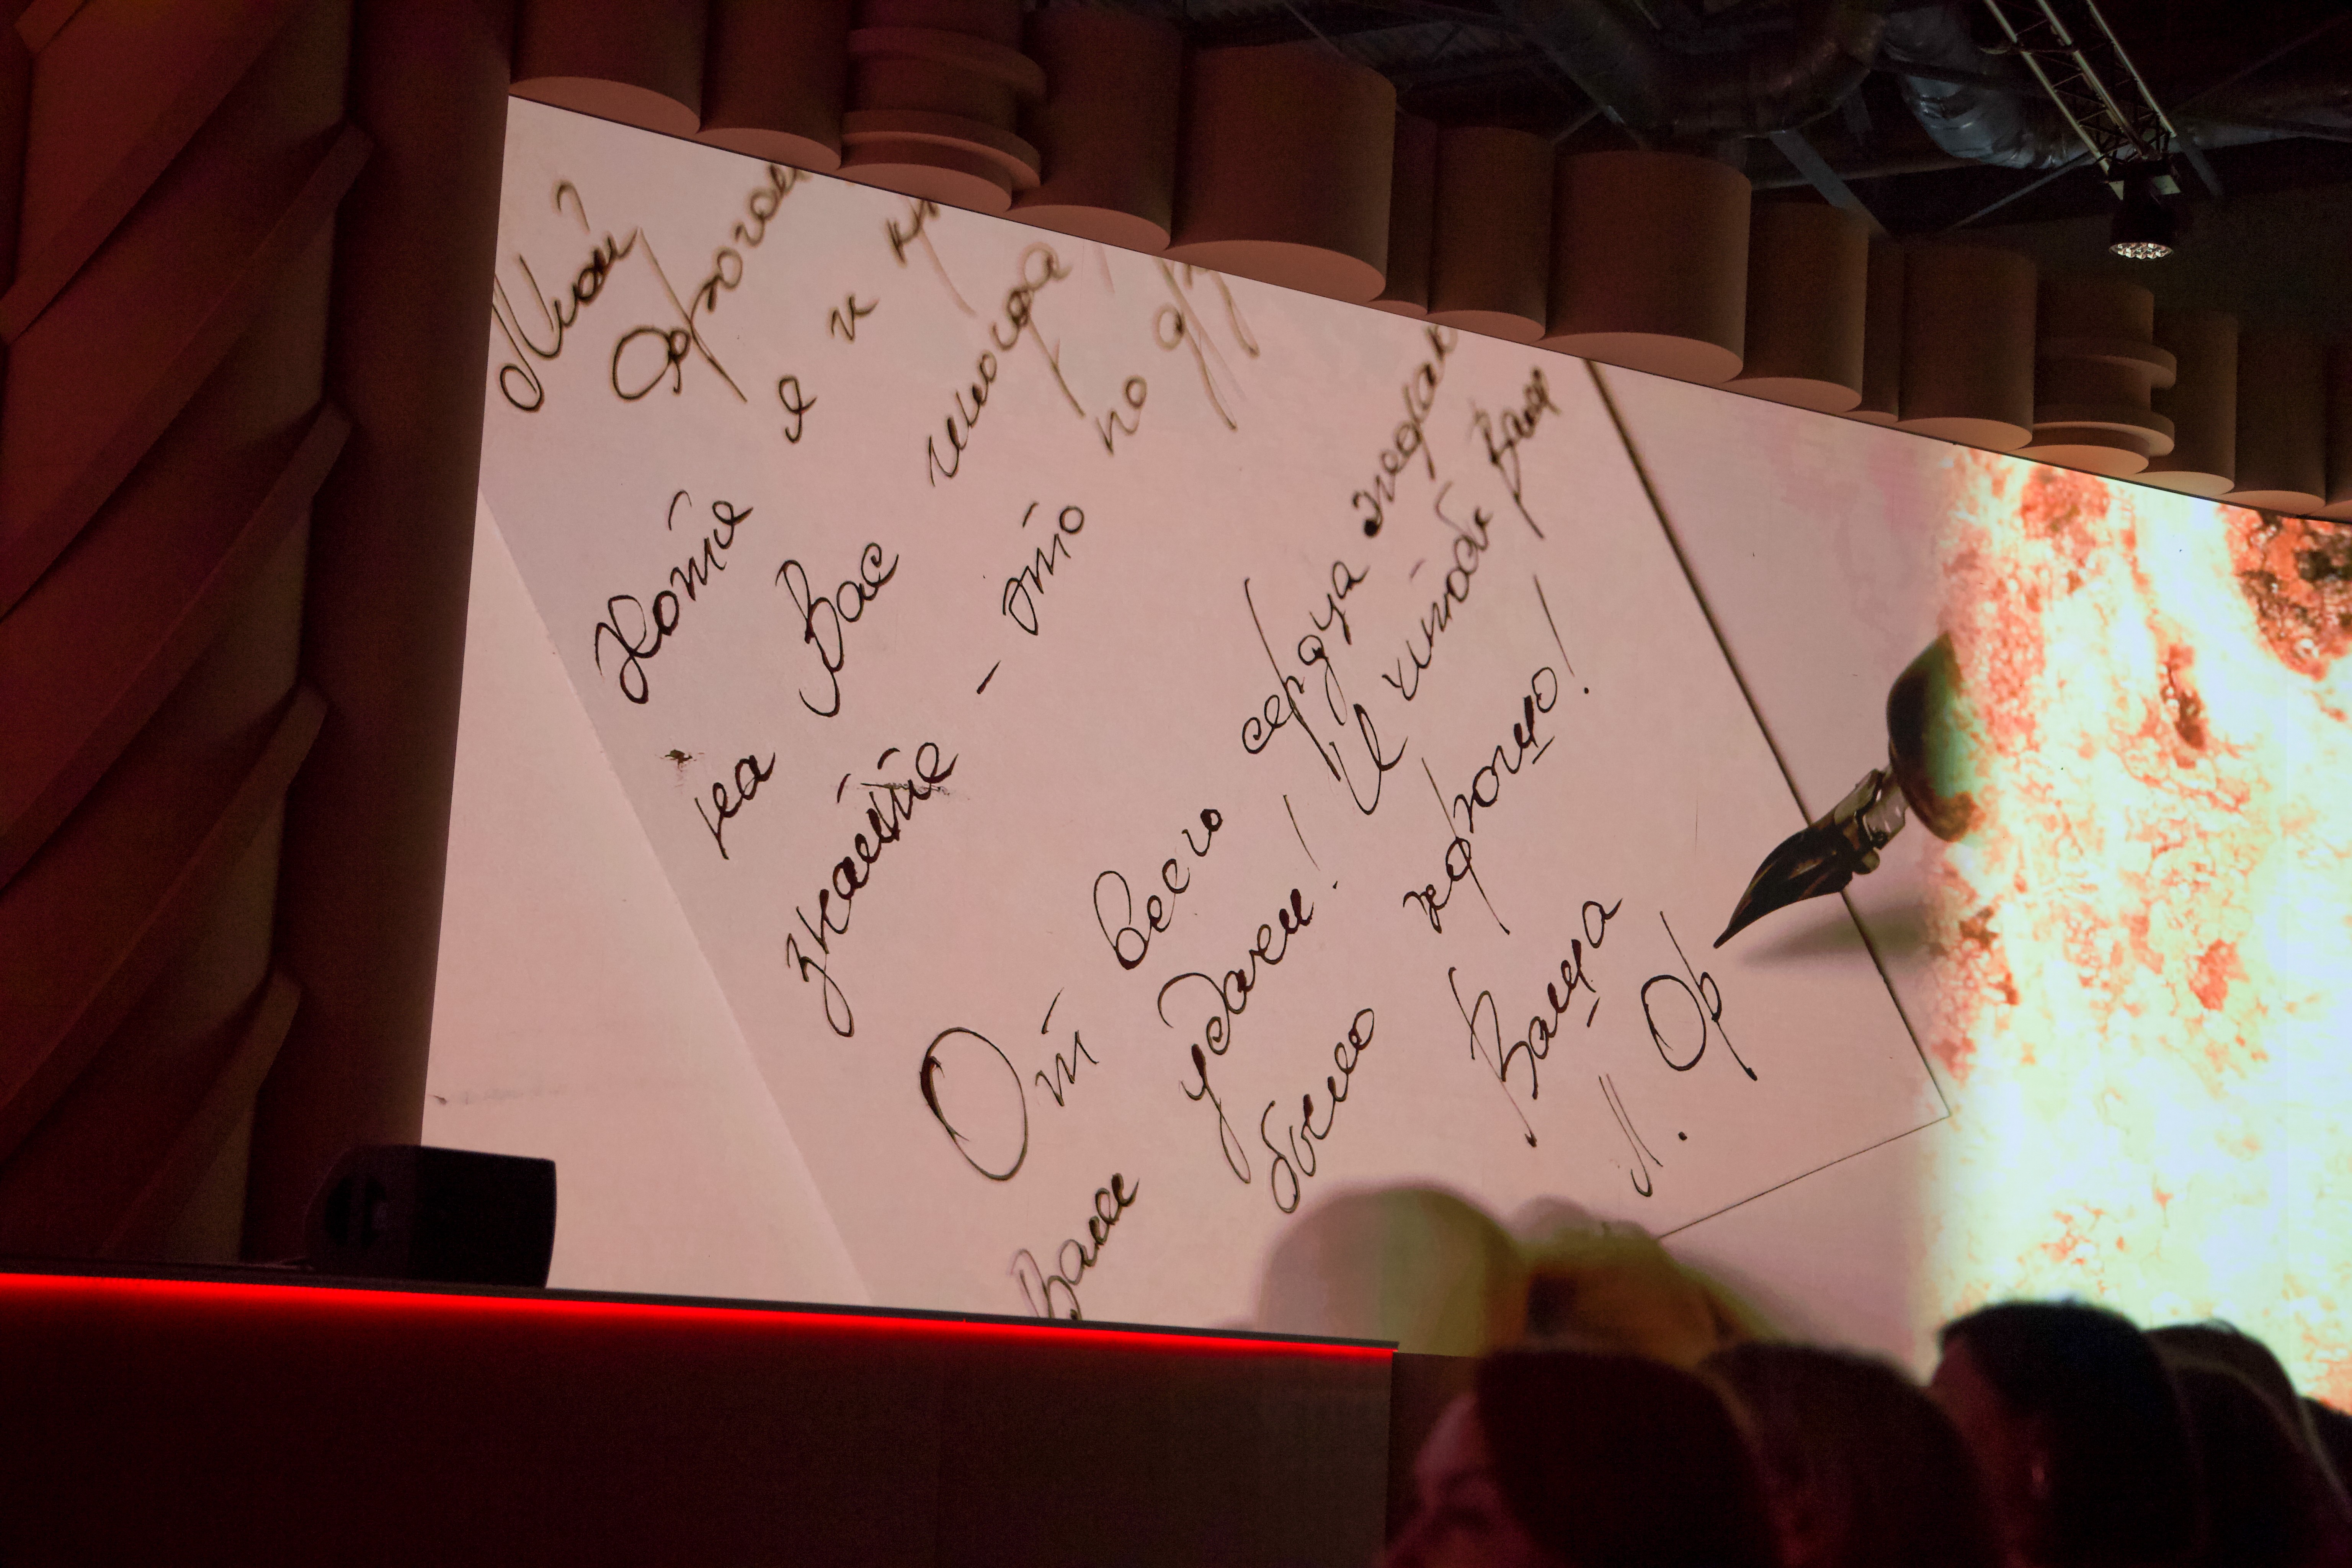 Мой
дорогой
Хотя я и
на Вас иногда
знайте - это по
От всего сердца желаю
Вам удачи! И чтобы Вам
было хорошо!
Ваша
Л. Ор